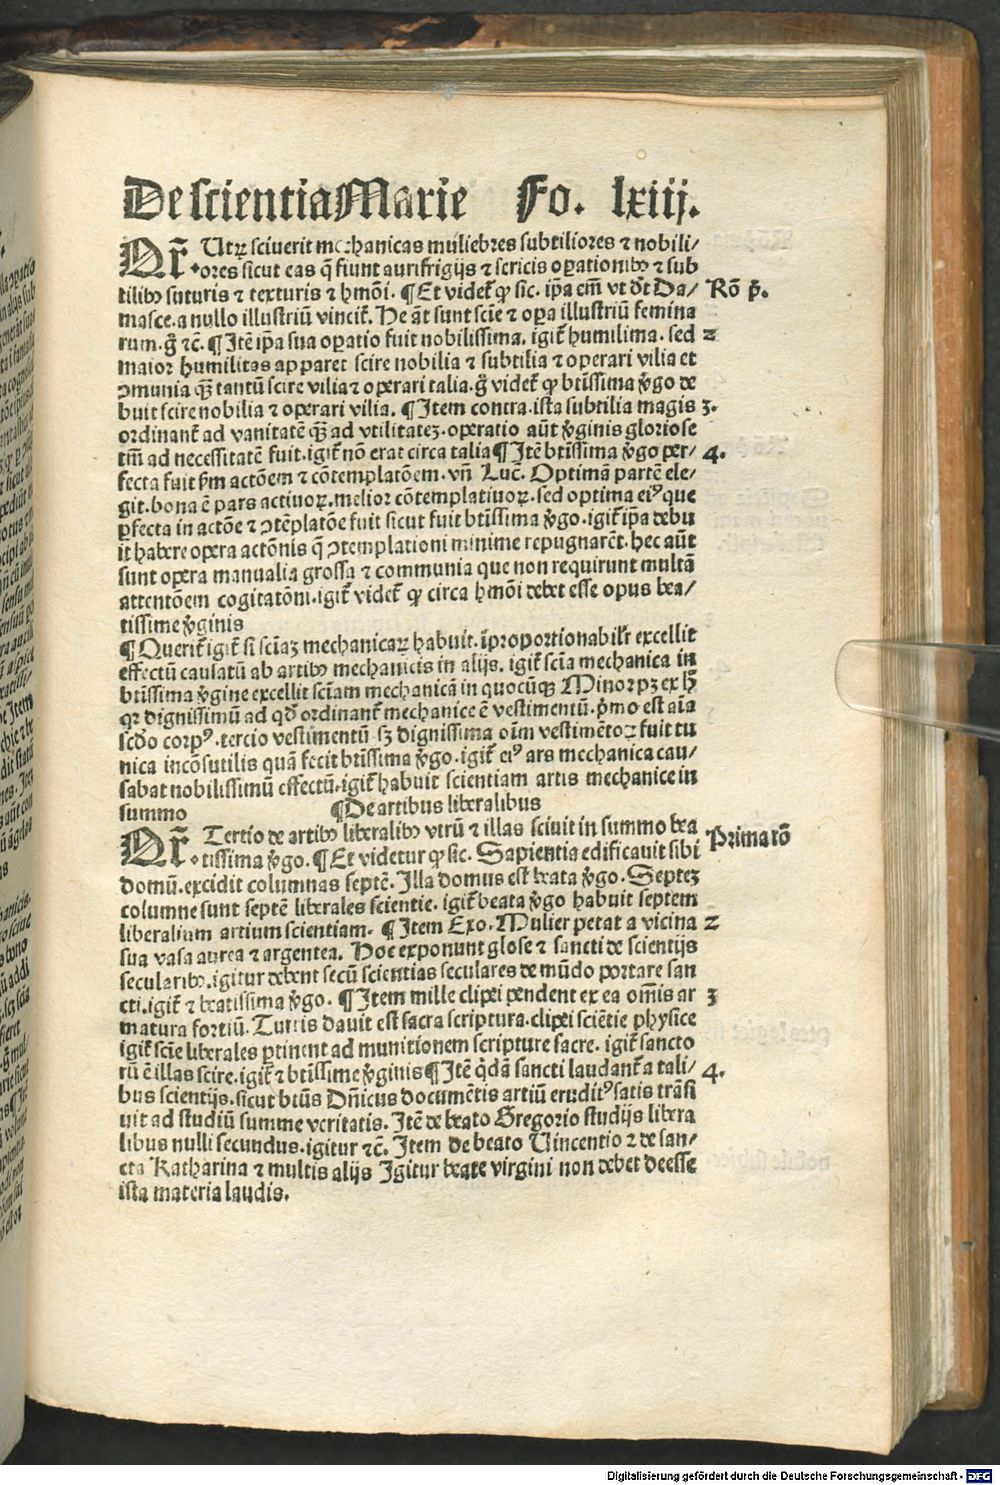 De scientia Marie Fo. lxiij.
Qr̃. Utrꝝ sciuerit mechanicas muliebres subtiliores ⁊ nobili/
ores sicut eas q̃ fiunt aurifrigijs ⁊ sericis oꝑationibꝰ ⁊ sub
tilibꝰ suturis ⁊ texturis ⁊ hmõi. ¶Et videt̃ ꝙ sic. ip̃a em̃ vt dr̃t Da/ Rõ p̃.
masce. a nullo illustriũ vincit̃. He ãt sunt sciẽ ⁊ oꝑa illustriũ femina
rum. g̃ ⁊c̃. ¶Itẽ ip̃a sua oꝑatio fuit nobilissima. igit̃ humilima. sed 2
maior humilitas apparet scire nobilia ⁊ subtilia ⁊ operari vilia et
ꝯmunia qꝫ̃ tantũ scire vilia ⁊ operari talia. g̃ videt̃ ꝙ btĩssima ꝟgo de
buit scire nobilia ⁊ operari vilia. ¶Item contra. ista subtilia magis 3.
ordinant̃ ad vanitatẽ qꝫ̃ ad vtilitateꝫ. operatio aũt ꝟginis gloriose
tm̃ ad necessitatẽ fuit. igit̃ nõ erat circa talia ¶Itẽ btĩssima ꝟgo per/ 4.
fecta fuit ẜm actõem ⁊ cõtemplatõem. vñ Luc̃. Optimã partẽ ele/
git. bona ẽ pars actiuoꝝ. melior cõtemplatiuoꝝ. sed optima eiꝰ que
ꝑfecta in actõe ⁊ ꝯtẽplatõe fuit sicut fuit btĩssima ꝟgo. igit̃ ip̃a debu
it habere opera actõnis q̃ ꝯtemplationi minime repugnarẽt. hec aũt
sunt opera manualia grossa ⁊ communia que non requirunt multã
attentõem cogitatõni. igit̃ videt̃ ꝙ circa hmõi debet esse opus bea/
tissime ꝟginis
¶Querit̃ igit̃ si sciãꝫ mechanicaꝝ habuit. ĩproportionabilr̃ excellit
effectũ causatũ ab artibꝰ mechanicis in alijs. igit̃ sciã mechanica in
btĩssima ꝟgine excellit sciãm mechanicã in quocũqꝫ Minor pꝫ ex h̃
qꝛ dignissimũ ad qd̃ ordinant̃ mechanice ẽ vestimentũ. p̃mo est aĩa
scd̃o corpꝰ. tercio vestimentũ sꝫ dignissima oĩm vestimẽtoꝝ fuit tu
nica incõsutilis quã fecit btĩssima ꝟgo. igit̃ eiꝰ ars mechanica cau/
sabat nobilissimũ effectũ. igit̃ habuit scientiam artis mechanice in
summo ¶De artibus liberalibus
Qr̃. Tertio de artibꝰ liberalibꝰ vtrũ ⁊ illas sciuit in summo bea
tissima ꝟgo. ¶Et videtur ꝙ sic. Sapientia edificauit sibi Prima rõ
domũ. excidit columnas septẽ. Illa domus est beata ꝟgo. Septeꝫ
columne sunt septẽ liberales scientie. igit̃ beata ꝟgo habuit septem
liberalium artium scientiam. ¶Item Exo. Mulier petat a vicina 2
sua vasa aurea ⁊ argentea. Hoc exponunt glose ⁊ sancti de scientijs
secularibꝰ. igitur debent secũ scientias seculares de mũdo portare san
cti. igit̃ ⁊ beatissima ꝟgo. ¶Item mille clipei pendent ex ea om̃is ar 3
matura fortiũ. Turris dauit est sacra scriptura. clipei sciẽtie physice
igit̃ sciẽ liberales ꝑtinent ad munitionem scripture sacre. igit̃ sancto
rũ ẽ illas scire. igit̃ ⁊ btĩssime ꝟginis ¶Itẽ q̃dã sancti laudant̃ a tali/ 4.
bus scientijs. sicut btũs Dñicus documẽtis artiũ eruditꝰ satis trãsi
uit ad studiũ summe veritatis. Itẽ de beato Gregorio studijs libera
libus nulli secundus. igitur ⁊c̃. Item de beato Uincentio ⁊ de san/
cta Katharina ⁊ multis alijs Igitur beate virgini non debet deesse
ista materia laudis.
Digitalisierung gefördert durch die Deutsche Forschungsgemeinschaft - DFG